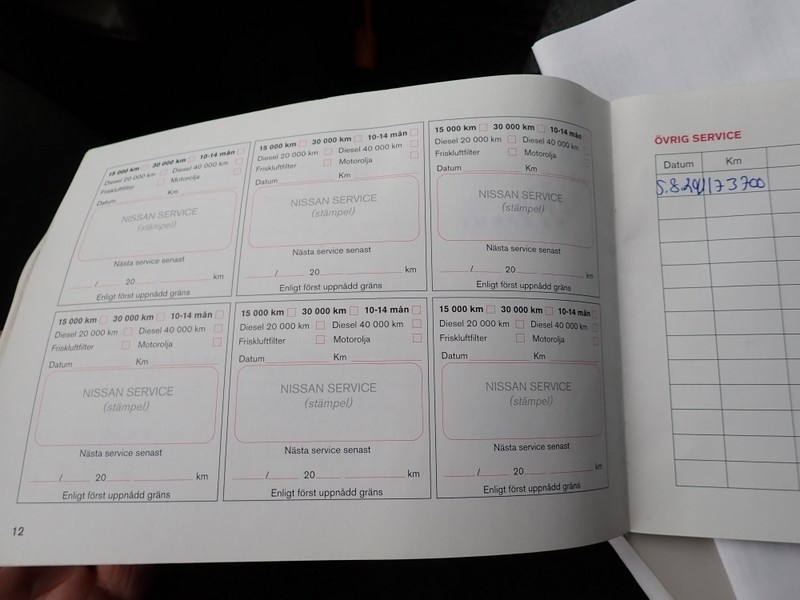 15 000 km 30 000 km 10-14 mån
Diesel 20 000 km Diesel 40 000 km
Friskluftfilter Motorolja
Datum Km
NISSAN SERVICE
(stämpel)
Nästa service senast
/ 20 km
Enligt först uppnådd gräns
15 000 km 30 000 km 10-14 mån
Diesel 20 000 km Diesel 40 000 km
Friskluftfilter Motorolja
Datum Km
NISSAN SERVICE
(stämpel)
Nästa service senast
/ 20 km
Enligt först uppnådd gräns
15 000 km 30 000 km 10-14 mån
Diesel 20 000 km Diesel 40 000 km
Friskluftfilter Motorolja
Datum Km
NISSAN SERVICE
(stämpel)
Nästa service senast
/ 20 km
Enligt först uppnådd gräns
15 000 km 30 000 km 10-14 mån
Diesel 20 000 km Diesel 40 000 km
Friskluftfilter Motorolja
Datum Km
NISSAN SERVICE
(stämpel)
Nästa service senast
/ 20 km
Enligt först uppnådd gräns
15 000 km 30 000 km 10-14 mån
Diesel 20 000 km Diesel 40 000 km
Friskluftfilter Motorolja
Datum Km
NISSAN SERVICE
(stämpel)
Nästa service senast
/ 20 km
Enligt först uppnådd gräns
15 000 km 30 000 km 10-14 mån
Diesel 20 000 km Diesel 40 000 km
Friskluftfilter Motorolja
Datum Km
NISSAN SERVICE
(stämpel)
Nästa service senast
/ 20 km
Enligt först uppnådd gräns
12
ÖVRIG SERVICE
Datum Km
5.8.24 173700